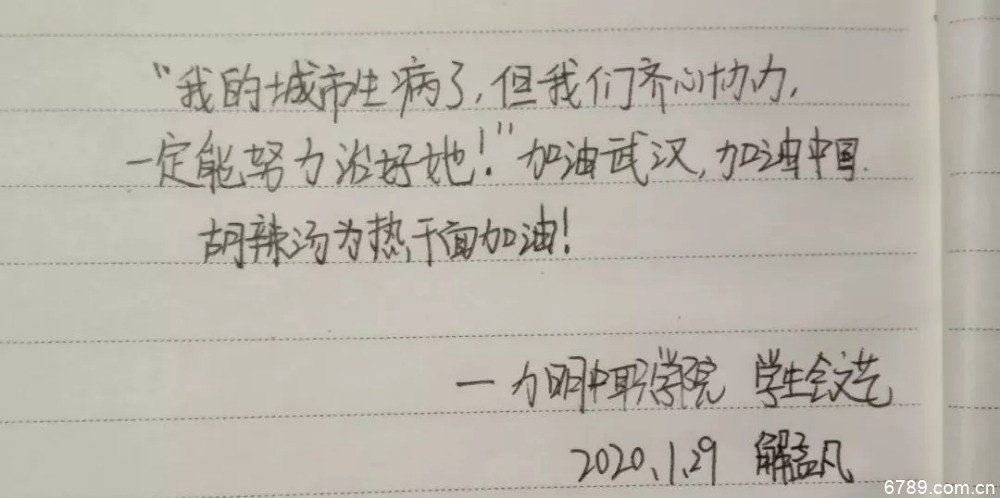 “我的城市生病了,但我们齐心协力,
一定能努力治好她!”加油武汉,加油中国.
胡辣汤为热干面加油!
—力明中职学院 学生会文艺
2020.1.29 解孟凡
6789.com.cn